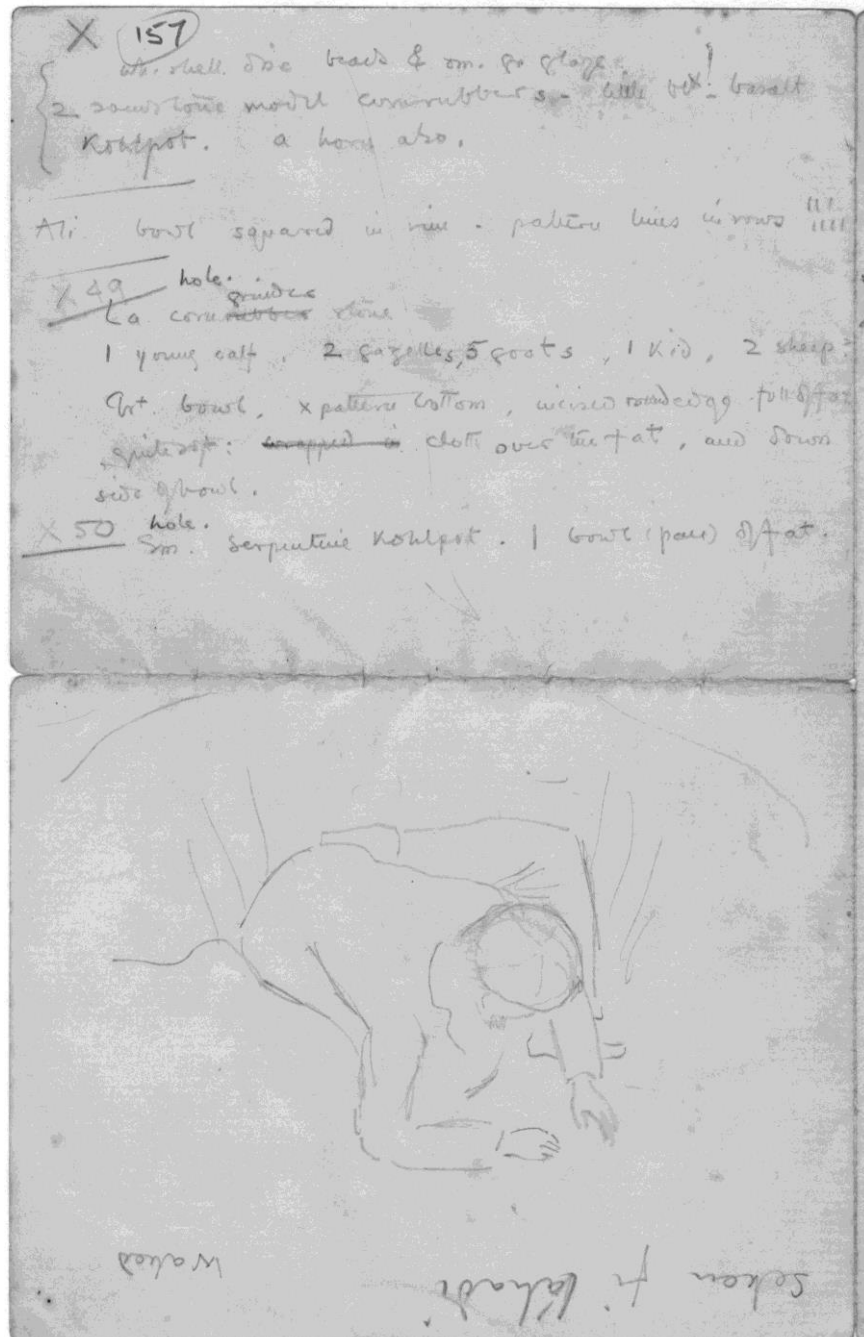 X 157
wh. shell disc beads & sm. gr glaze
2 sandstone model cornrubbers - basalt
Kohlpot. a horn also.
Ali. bowl squared in rim - pattern lines in rows
X 49 hole.
grinder
La cornrubber stone
1 young calf, 2 gazelles, 5 goats, 1 Kid, 2 sheep?
bowl, x pattern bottom, incised round edge full of fat
quite soft: wrapped in cloth over the fat, and down
side of bowl.
X 50 hole.
Sm. serpentine Kohlpot. 1 bowl of fat.
seken fi